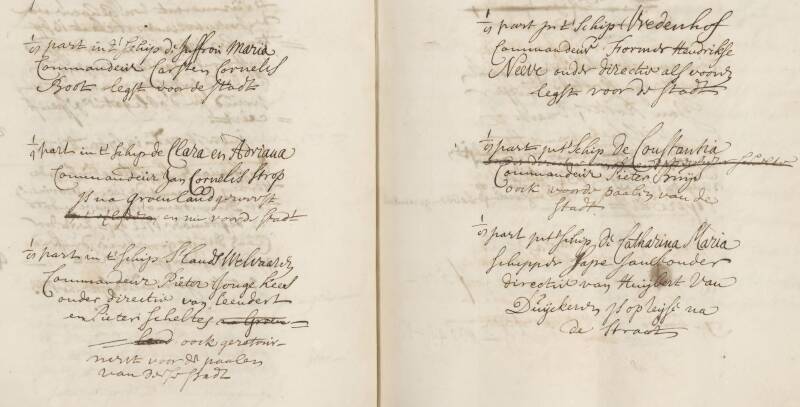 part in 't Schip de Juffrou Maria
Commandeur Carsten Cornelis
Boot legst voor de Stadt
part in 't Schip de Clara en Adriana
Commandeur Jan Cornelis Strop
is na Groenland geweest
en nu voor de Stadt
part in 't Schip 's Lands Welvaaren
Commandeur Pieter Jonge Kees
onder directie van Leendert
en Pieter Scheltes na Groen-
land oock geretour-
neert voor de paalen
van dese Stadt
part in 't Schip Vredenhof
Commandeur Former Hendrikse
Neeve onder directie als vooren
legst voor de Stadt
part in 't Schip de Constantia
Commandeur Pieter
oock voor de paalen van de
Stadt
part in 't Schip de Catharina Maria
Schipper Jape onder
directie van Huijbert van
Duijckeren is op reijse na
de Straat